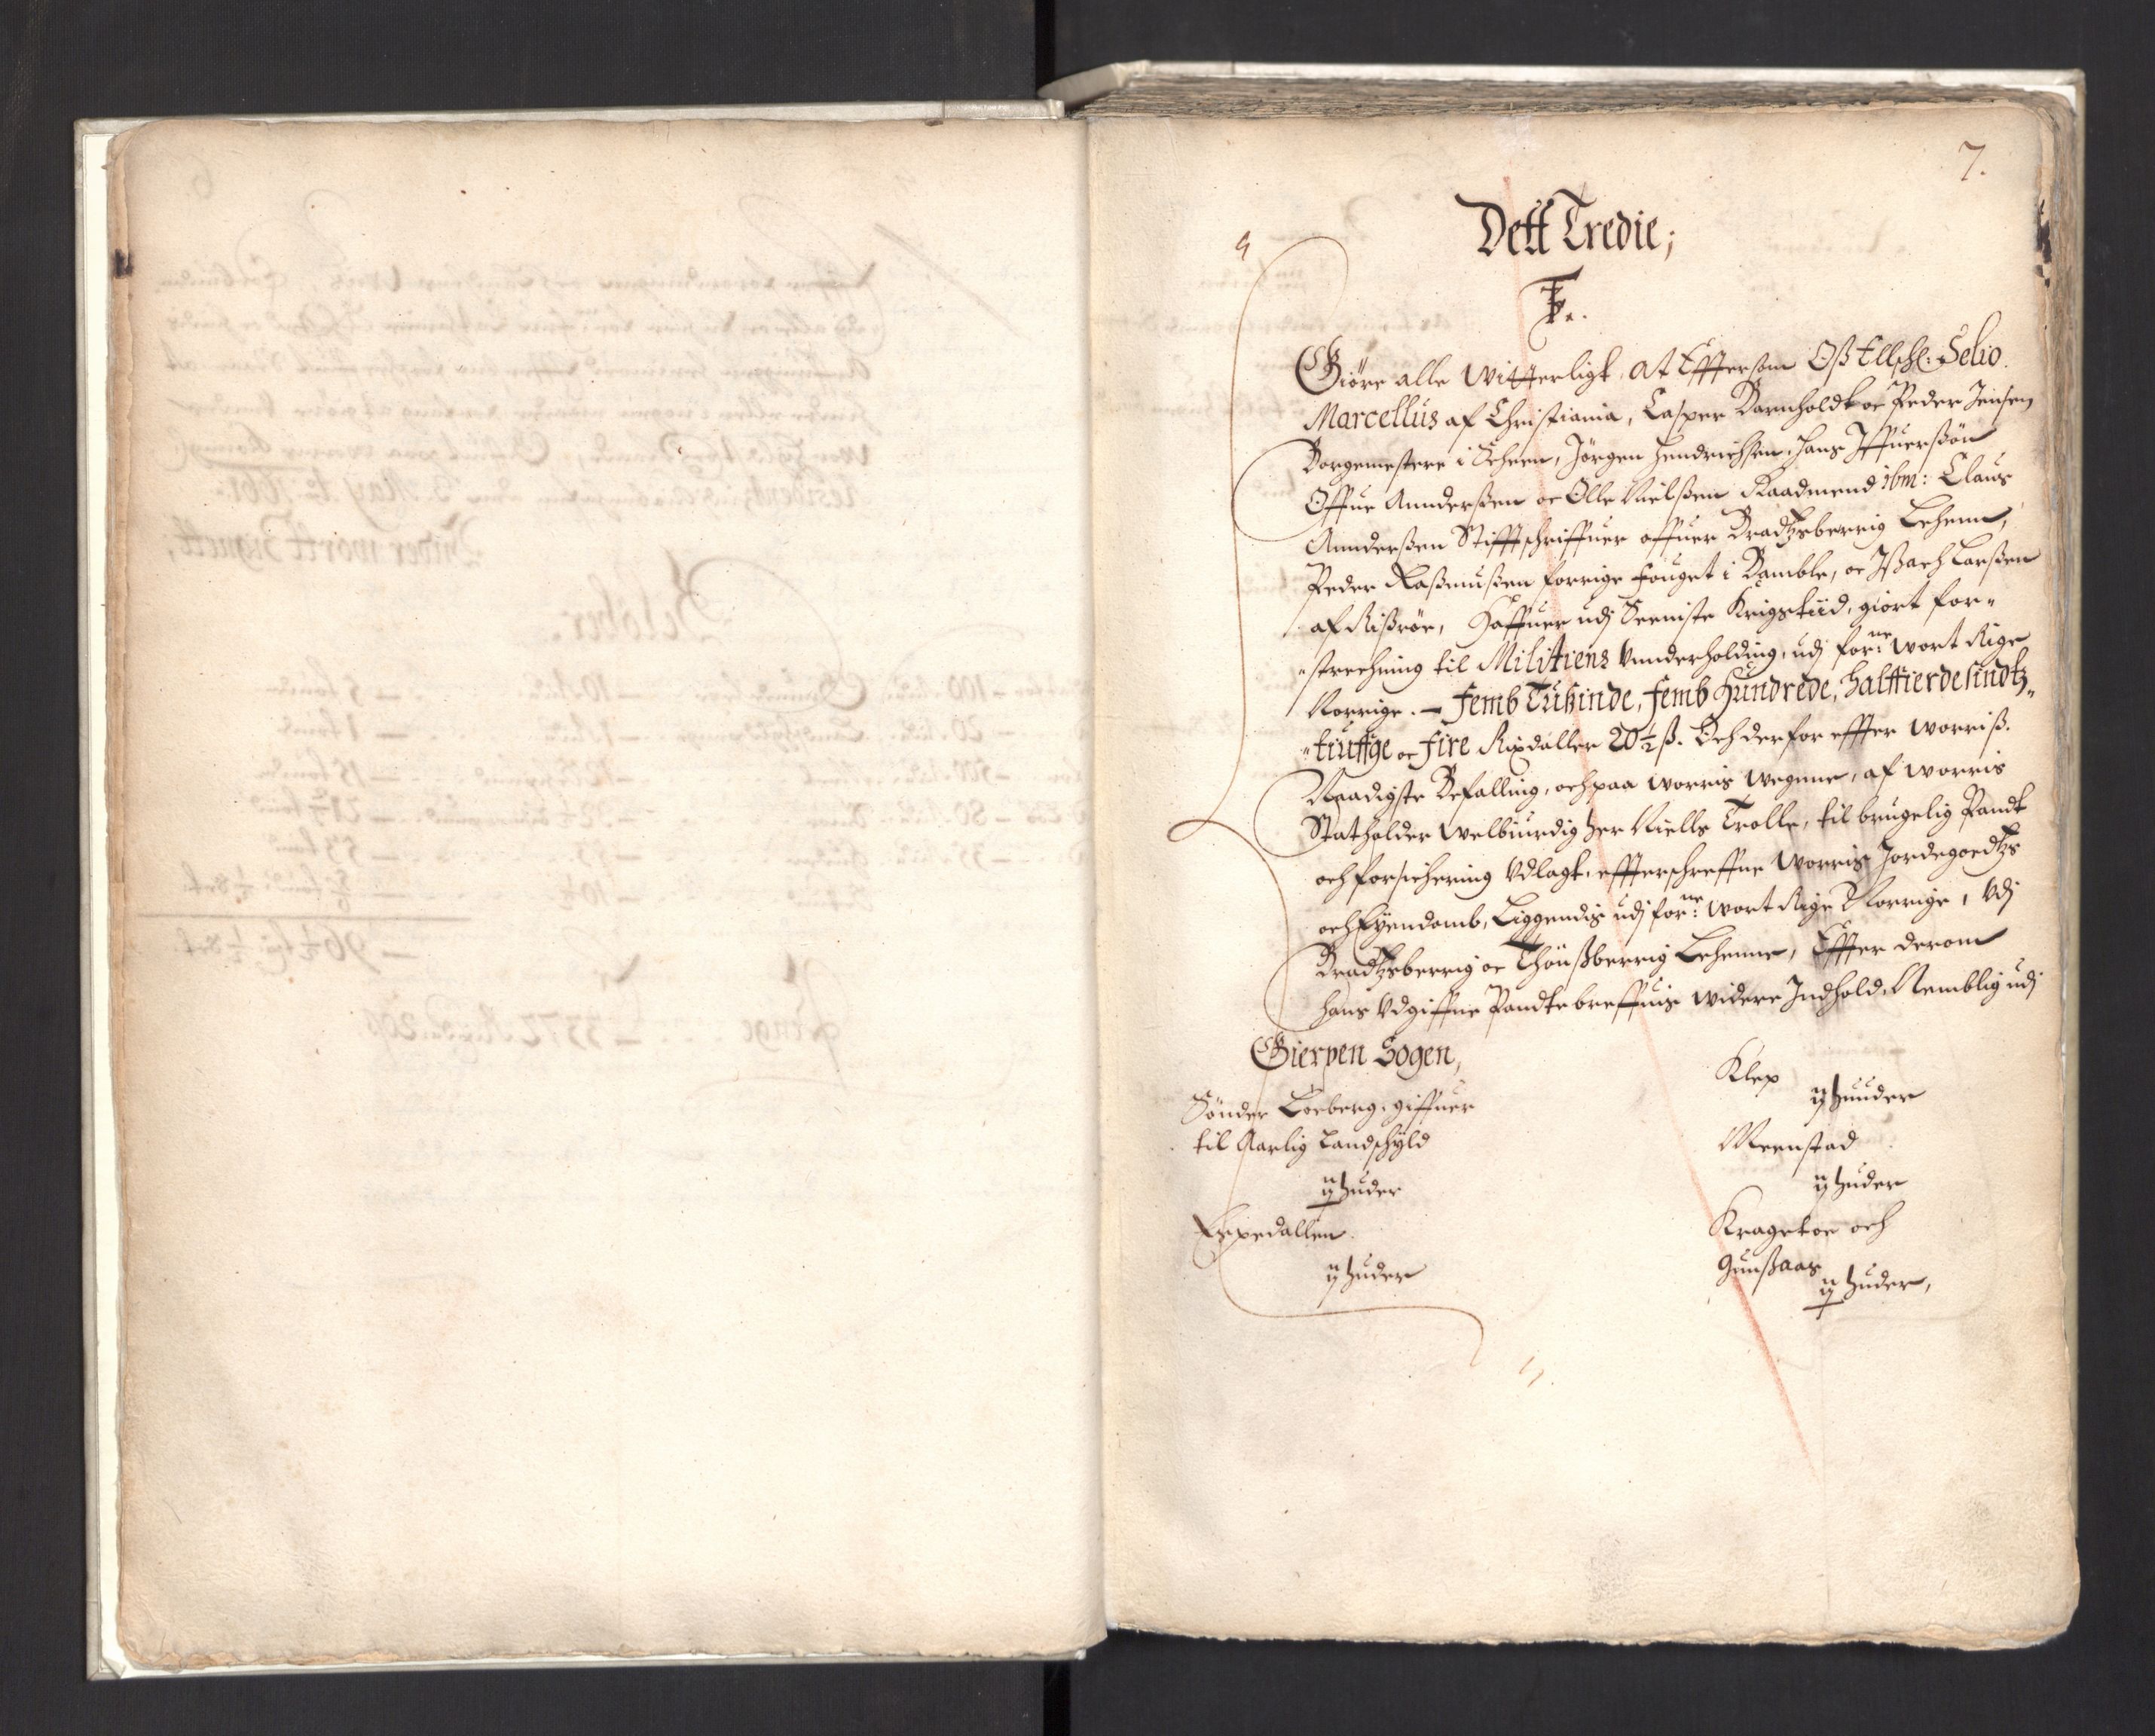 7.
Dett Tredie;
F3.
Giöre alle Witterligt, At Efftersom Oss Ellschl: Selio
Marcellus af Christiania, Casper Barnholdt oc Peder Jensen
Borgemestere i Scheen, Jörgen Hendrichsen, Hans Iffuerssön
Offue Anderssen oc Olle Nielssen Raadmend ibm: Claus
Anderssen Stifftschriffuer offuer Bradtzberrig Lehenn,
Peder Rassmussen forrige Fouget i Bamble, oc Issach Larssen
af Riissöer, Haffuer udj Seeniste Krigstiid, giort for-
-strechning til Militiens Vnderholding, udj for:ne Wort Rige
Norrige. - Femb Tusinde, Femb Hundrede, Halffierdesindtz-
-tiuffge oc Fire Rixdaller 20½ ss. Och derfor effter Worriss
Naadigste Befalling, och paa Worris Wegnne, af Worris
Statholder Welbiurdig Her Niells Trolle, til brugelig Pandt
och forsichering Vdlagt, effterschreffne Worris Jordegoedtzs
och Eyendomb, Liggendis udj for:ne Wort Rige Norrige, Vdj
Bradtzberrig oc Thönssberrig Lehenne, Effter derom
hans Vdgiffne Pandtebreffuis widere Indhold, Nemblig udj
Gierpen Sogen,
Sönder Boeberg, giffuer
til Aarlig Landschyld
ij huder
Espedallen
ij huder
Klep
ij huuder
Meenstad
ij huder
Kragetoe och
Gunssaas
ij huder,